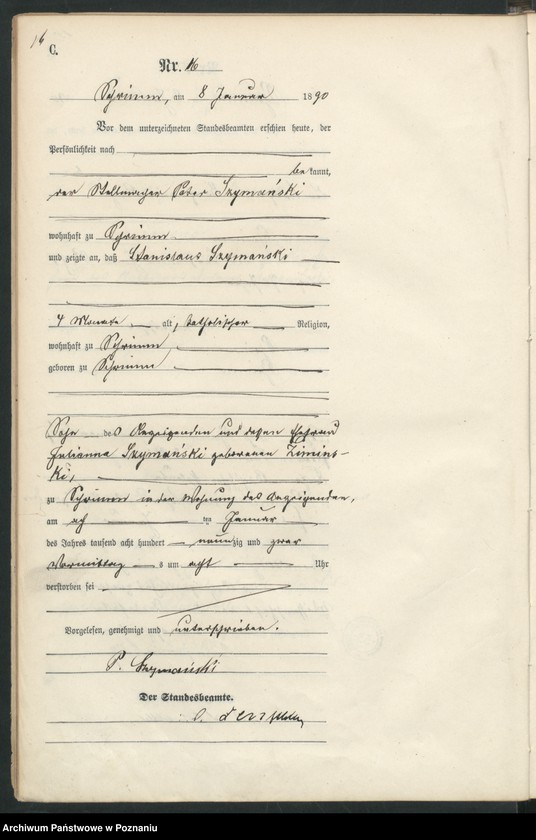 16
C.
Nr. 16
Schrimm, am 8 Januar 1890
Vor dem unterzeichneten Standesbeamten erschien heute, der
Persönlichkeit nach
bekannt,
der Stellmacher Peter Szymański
wohnhaft zu Schrimm
und zeigte an, daß Stanislaus Szymański
4 Monate alt, katholischer Religion,
wohnhaft zu Schrimm
geboren zu Schrimm
Sohn des Anzeigenden und dessen Ehefrau
Julianna Szymański geborenen Zimins-
ki,
zu Schrimm in der Wohnung des Anzeigenden,
am acht ten Januar
des Jahres tausend acht hundert neunzig und zwar
Vormittag s um acht Uhr
verstorben sei
Vorgelesen, genehmigt und unterschrieben.
P. Szymański
Der Standesbeamte.
Archiwum Państwowe w Poznaniu